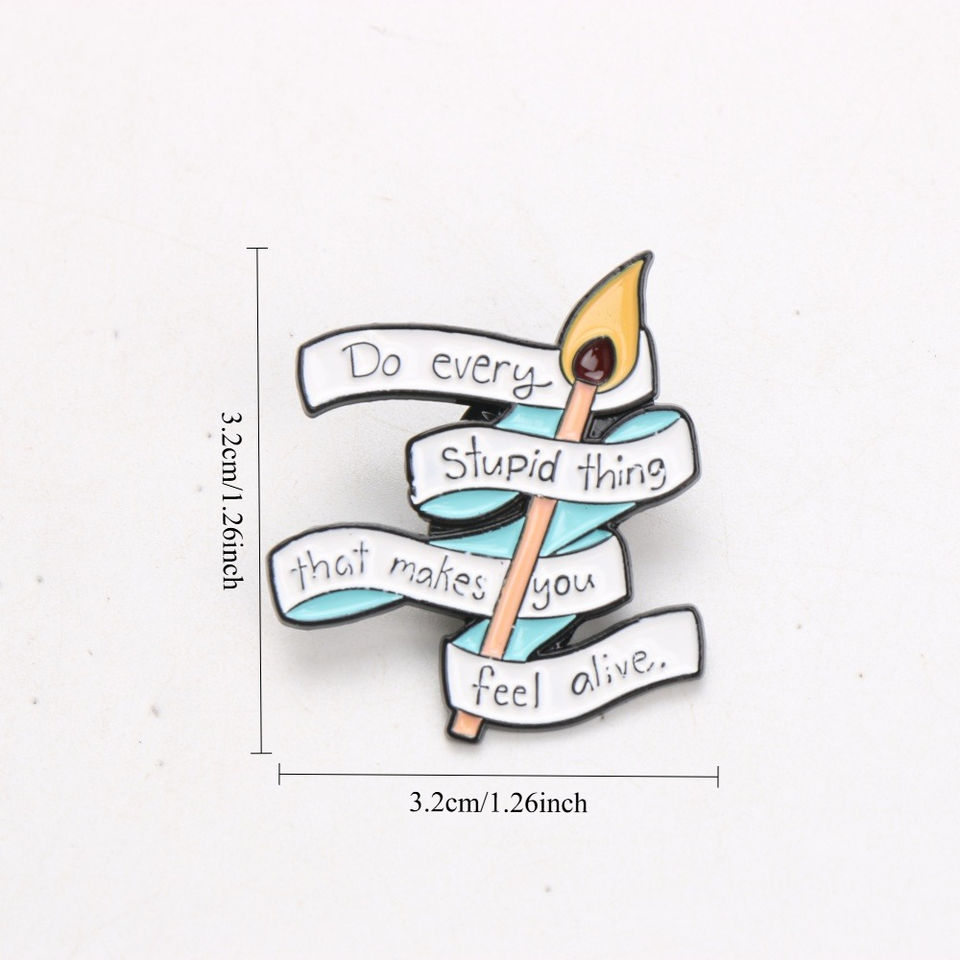 Do every
Stupid thing
that makes you
feel alive.
3.2cm/1.26inch
3.2cm/1.26inch